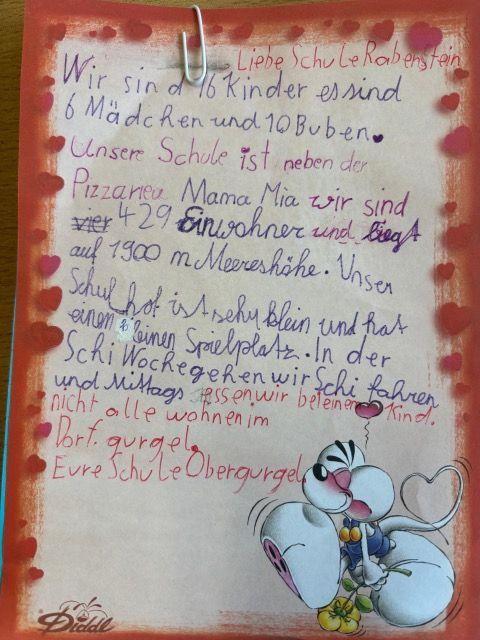 Liebe Schule Rabenstein
Wir sind 16 Kinder es sind
6 Mädchen und 10 Buben.
Unsere Schule ist neben der
Pizzarieu Mama Mia wir sind
vier 429 Einwohner und liegt
auf 1900 m Meereshöhe. Unser
Schulhof ist sehr klein und hat
einen kleinen Spielplatz. In der
Schi Woche gehen wir Schi fahren
und Mittags essen wir bei einem Kind.
nicht alle wohnen im
Dorf gurgel.
Eure Schule Obergurgel.
Diddl